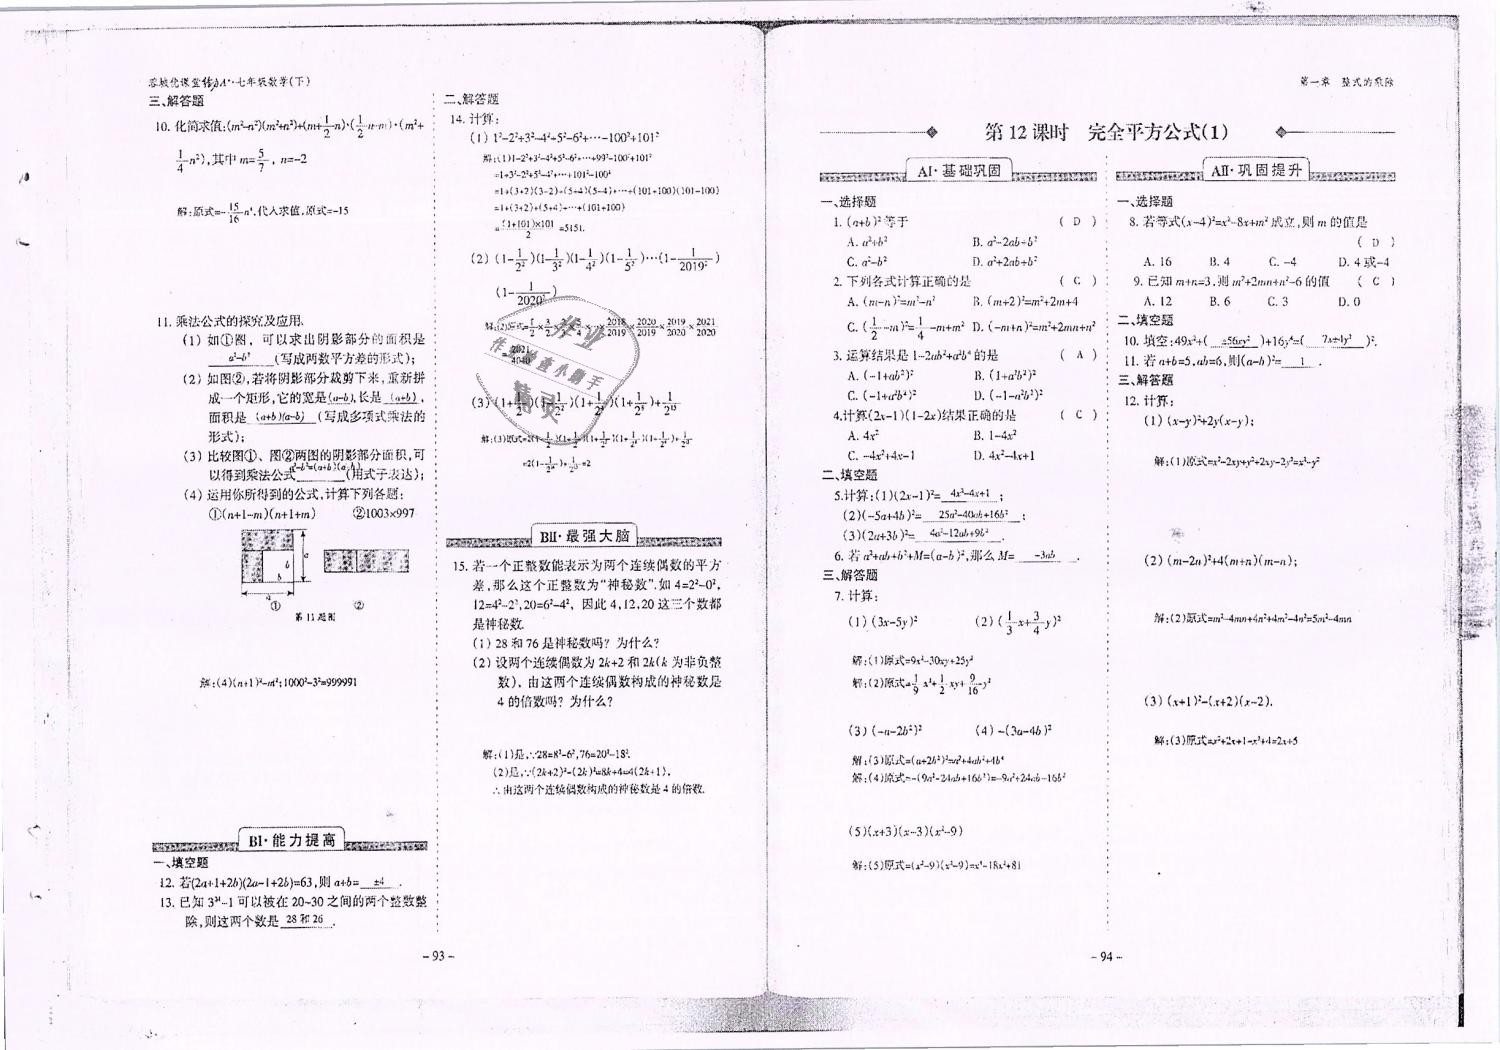 蓉城优课堂给力A⁺·七年级数学(下)
三、解答题
10. 化简求值:(m²-n²)(m²+n²)+(m+1/2n)·(1/2n-m)·(m²+
1/4n²),其中 m=5/7, n=-2
解:原式=-15/16n⁴,代入求值,原式=-15
11. 乘法公式的探究及应用.
(1) 如①图, 可以求出阴影部分的面积是
a²-b² (写成两数平方差的形式);
(2) 如图②,若将阴影部分裁剪下来,重新拼
成一个矩形,它的宽是(a-b),长是 (a+b) ,
面积是 (a+b)(a-b) (写成多项式乘法的
形式);
(3) 比较图①、图②两图的阴影部分面积,可
以得到乘法公式a²-b²=(a+b)(a-b)(用式子表达);
(4) 运用你所得到的公式,计算下列各题:
①(n+1-m)(n+1+m) ②1003×997
a
b
b
a
① ②
第 11 题图
解:(4)(n+1)²-m²;1000²-3²=999991
BⅠ·能力提高
一、填空题
12. 若(2a+1+2b)(2a-1+2b)=63,则 a+b= ±4 .
13. 已知 3²⁴-1 可以被在 20~30 之间的两个整数整
除,则这两个数是 28 和 26 .
二、解答题
14. 计算:
(1) 1²-2²+3²-4²+5²-6²+…-100²+101²
解:(1)1-2²+3²-4²+5²-6²+…+99²-100²+101²
=1+3²-2²+5²-4²+…+101²-100²
=1+(3+2)(3-2)+(5+4)(5-4)+…+(101+100)(101-100)
=1+(3+2)+(5+4)+…+(101+100)
=(1+101)×101/2=5151.
(2) (1-1/2²)(1-1/3²)(1-1/4²)(1-1/5²)…(1-1/2019²)
(1-1/2020²)
解:(2)原式=1/2×3/2×2/3×4/3×…×2018/2019×2020/2019×2019/2020×2021/2020
=2021/4040
(3) (1+1/2)(1+1/2²)(1+1/2⁴)(1+1/2⁸)+1/2¹⁵
解:(3)原式=2(1-1/2)(1+1/2)(1+1/2²)(1+1/2⁴)(1+1/2⁸)+1/2¹⁵
=2(1-1/2¹⁶)+1/2¹⁵=2
作业
作业检查小助手
精灵
BⅡ·最强大脑
15. 若一个正整数能表示为两个连续偶数的平方
差,那么这个正整数为“神秘数”.如 4=2²-0²,
12=4²-2²,20=6²-4², 因此 4,12,20 这三个数都
是神秘数.
(1) 28 和 76 是神秘数吗? 为什么?
(2) 设两个连续偶数为 2k+2 和 2k(k 为非负整
数), 由这两个连续偶数构成的神秘数是
4 的倍数吗? 为什么?
解:(1)是,∵28=8²-6²,76=20²-18².
(2)是,∵(2k+2)²-(2k)²=8k+4=4(2k+1),
∴由这两个连续偶数构成的神秘数是 4 的倍数.
- 93 -
第一章 整式的乘除
第 12 课时 完全平方公式(1)
AⅠ·基础巩固
一、选择题
1. (a+b)²等于 ( D )
A. a²+b² B. a²-2ab+b²
C. a²-b² D. a²+2ab+b²
2. 下列各式计算正确的是 ( C )
A. (m-n)²=m²-n² B. (m+2)²=m²+2m+4
C. (1/2-m)²=1/4-m+m² D. (-m+n)²=m²+2mn+n²
3. 运算结果是 1-2ab²+a²b⁴的是 ( A )
A. (-1+ab²)² B. (1+a²b²)²
C. (-1+a²b⁴)² D. (-1-a²b²)²
4.计算(2x-1)(1-2x)结果正确的是 ( C )
A. 4x² B. 1-4x²
C. -4x²+4x-1 D. 4x²-4x+1
二、填空题
5.计算:(1)(2x-1)²= 4x²-4x+1 ;
(2)(-5a+4b)²= 25a²-40ab+16b² ;
(3)(2a+3b)²= 4a²-12ab+9b² .
6. 若 a²+ab+b²+M=(a-b)²,那么 M= -3ab .
三、解答题
7. 计算:
(1) (3x-5y)² (2) (1/3x+3/4y)²
解:(1)原式=9x²-30xy+25y²
解:(2)原式=1/9x²+1/2xy+9/16y²
(3) (-a-2b²)² (4) -(3a-4b)²
解:(3)原式=(a+2b²)²=a²+4ab²+4b⁴
解:(4)原式=-(9a²-24ab+16b²)=-9a²+24ab-16b²
(5)(x+3)(x-3)(x²-9)
解:(5)原式=(x²-9)(x²-9)=x⁴-18x²+81
AⅡ·巩固提升
一、选择题
8. 若等式(x-4)²=x²-8x+m²成立,则 m 的值是
( D )
A. 16 B. 4 C. -4 D. 4 或-4
9. 已知 m+n=3,则 m²+2mn+n²-6 的值 ( C )
A. 12 B. 6 C. 3 D. 0
二、填空题
10. 填空:49x²+( ±56xy² )+16y⁴=( 7x±4y² )².
11. 若 a+b=5,ab=6,则(a-b)²= 1 .
三、解答题
12. 计算:
(1) (x-y)²+2y(x-y);
解:(1)原式=x²-2xy+y²+2xy-2y²=x²-y²
(2) (m-2n)²+4(m+n)(m-n);
解:(2)原式=m²-4mn+4n²+4m²-4n²=5m²-4mn
(3) (x+1)²-(x+2)(x-2).
解:(3)原式=x²+2x+1-x²+4=2x+5
- 94 -